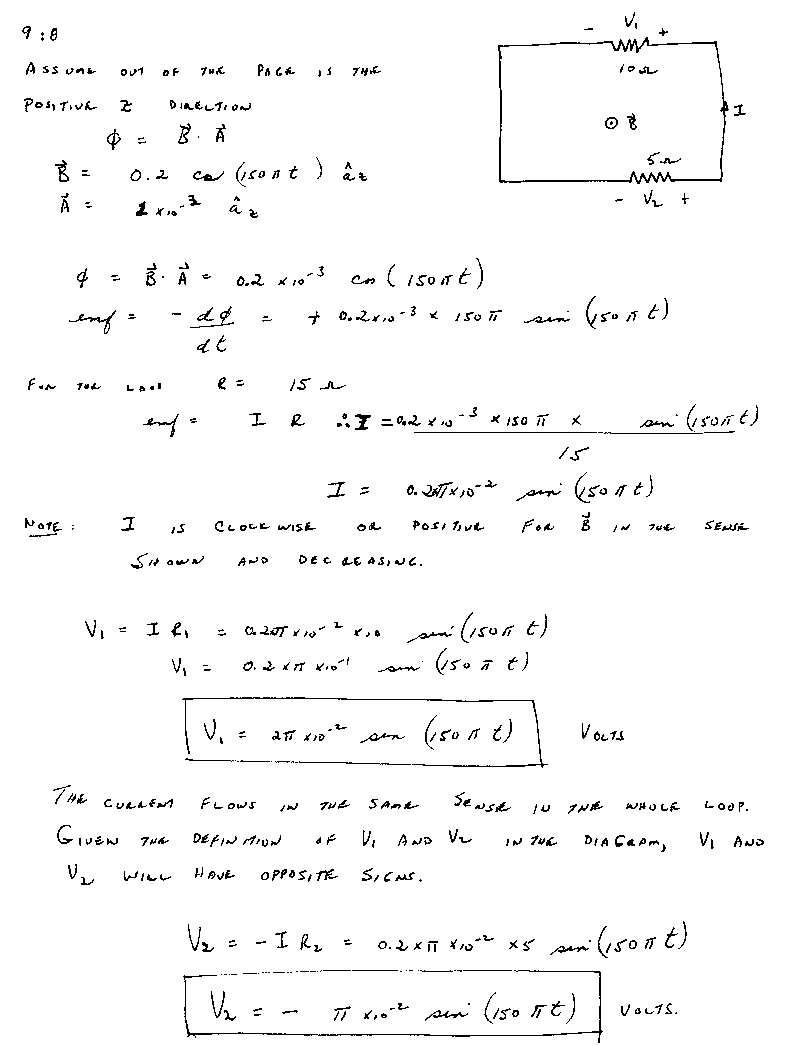 9:8
ASSUME OUT OF THE PAGE IS THE
POSITIVE Z DIRECTION
- V₁ +
10 Ω
⊙ B⃗
I
5 Ω
- V₂ +
ϕ = B⃗ · A⃗
B⃗ = 0.2 cos (150 π t) â_z
A⃗ = 1 x 10⁻³ â_z
ϕ = B⃗ · A⃗ = 0.2 x 10⁻³ cos (150 π t)
emf = - dϕ/dt = + 0.2 x 10⁻³ x 150 π sin (150 π t)
FOR THE LOOP R = 15 Ω
emf = I R ∴ I = 0.2 x 10⁻³ x 150 π x sin (150 π t)
15
I = 0.2π x 10⁻² sin (150 π t)
NOTE: I IS CLOCKWISE OR POSITIVE FOR B⃗ IN THE SENSE
SHOWN AND DECREASING.
V₁ = I R₁ = 0.2π x 10⁻² x 10 sin (150 π t)
V₁ = 0.2 x π x 10⁻¹ sin (150 π t)
V₁ = 2π x 10⁻² sin (150 π t) VOLTS
THE CURRENT FLOWS IN THE SAME SENSE IN THE WHOLE LOOP.
GIVEN THE DEFINITION OF V₁ AND V₂ IN THE DIAGRAM, V₁ AND
V₂ WILL HAVE OPPOSITE SIGNS.
V₂ = - I R₂ = 0.2 x π x 10⁻² x 5 sin (150 π t)
V₂ = - π x 10⁻² sin (150 π t) VOLTS.